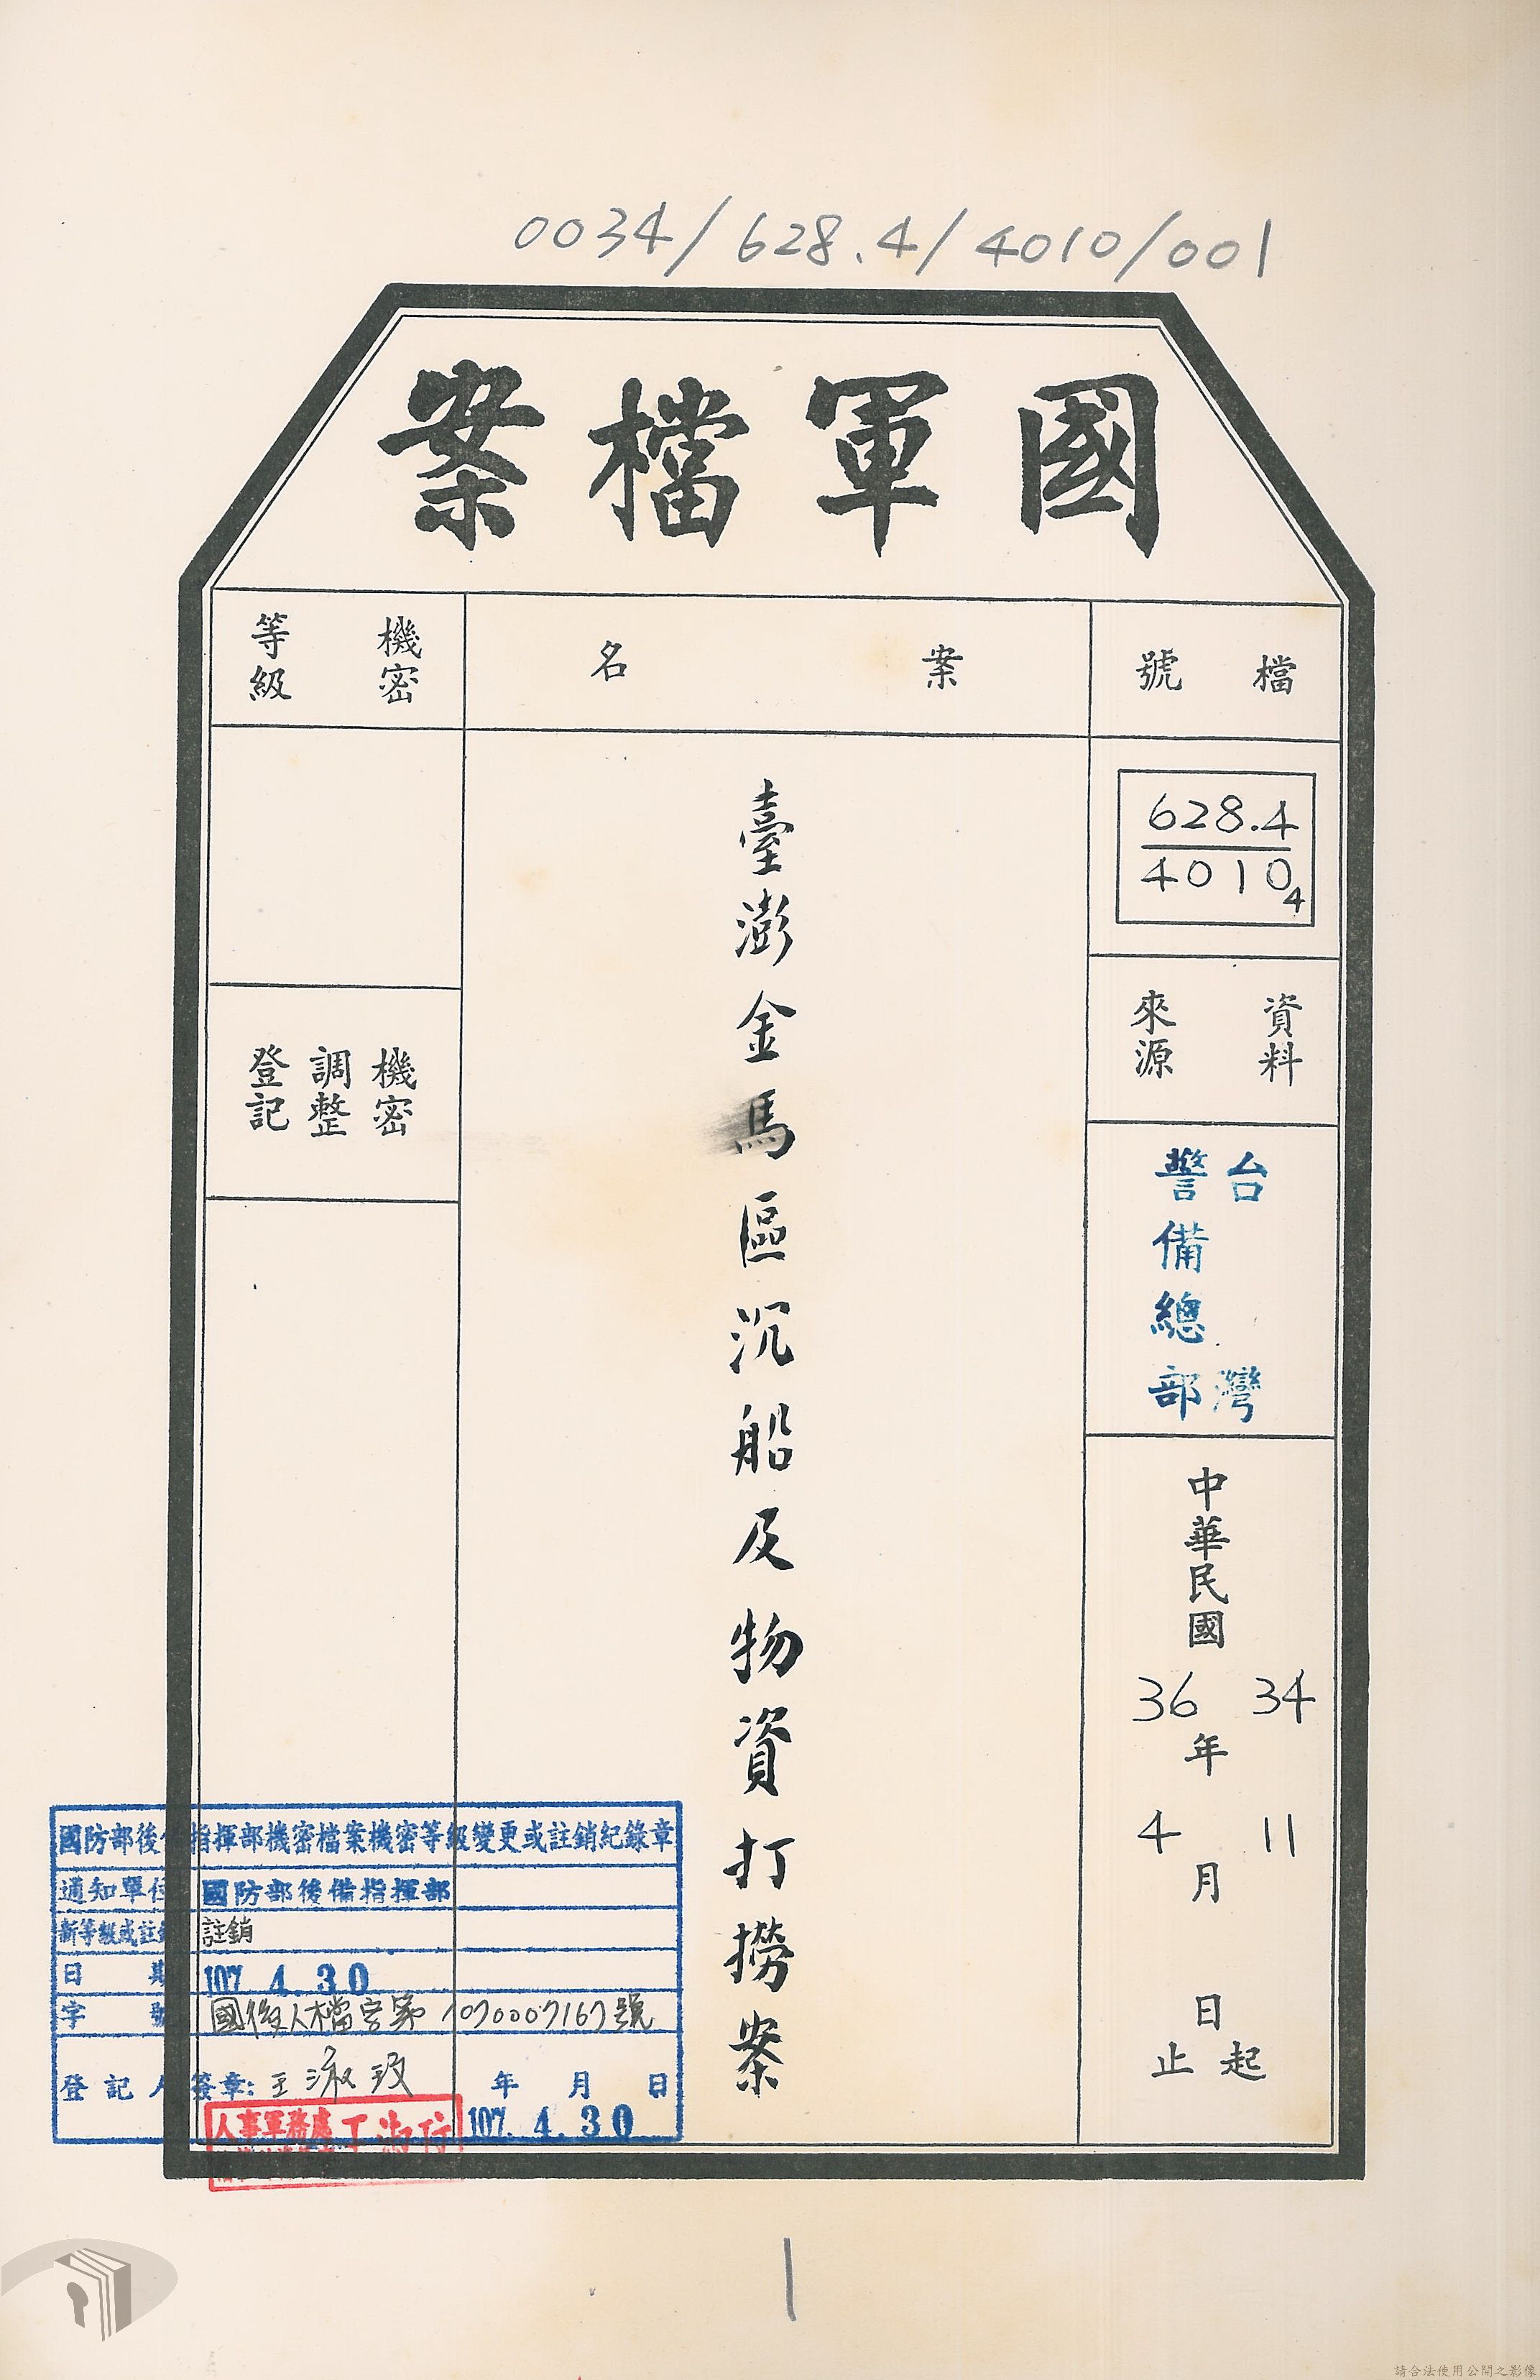 0034/628.4/4010/001
國軍檔案
檔號
628.4
4010
4
資料來源
台灣
警備總部
中華民國
34年11月日起
36年4月日止
案名
臺澎金馬區沉船及物資打撈案
機密等級
機密調整登記
國防部後備指揮部機密檔案機密等級變更或註銷紀錄章
通知單位 國防部後備指揮部
新等級或註銷 註銷
日期 107.4.30
字號 國後人檔字第1070007167號
登記人簽章:王淑玫 年月日
107.4.30
人事軍務處
1
請合法使用公開之影像